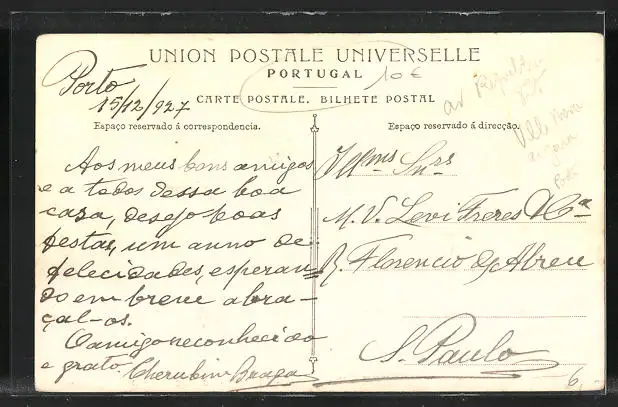 UNION POSTALE UNIVERSELLE
PORTUGAL
10€
CARTE POSTALE. BILHETE POSTAL
Porto
15/12/927
Espaço reservado á correspondencia.
Aos meus bons amigos
e a todos dessa boa
casa, desejo boas
festas, um anno de
felecidades, esperan=
do em breve abra-
çal-os.
O amigo reconhecido
e grato.
Cherubim Braga
Espaço reservado á direcção.
Illmos Snrs
M. V. Levi Freres & Ca
R. Florencio de Abreu
S. Paulo
6